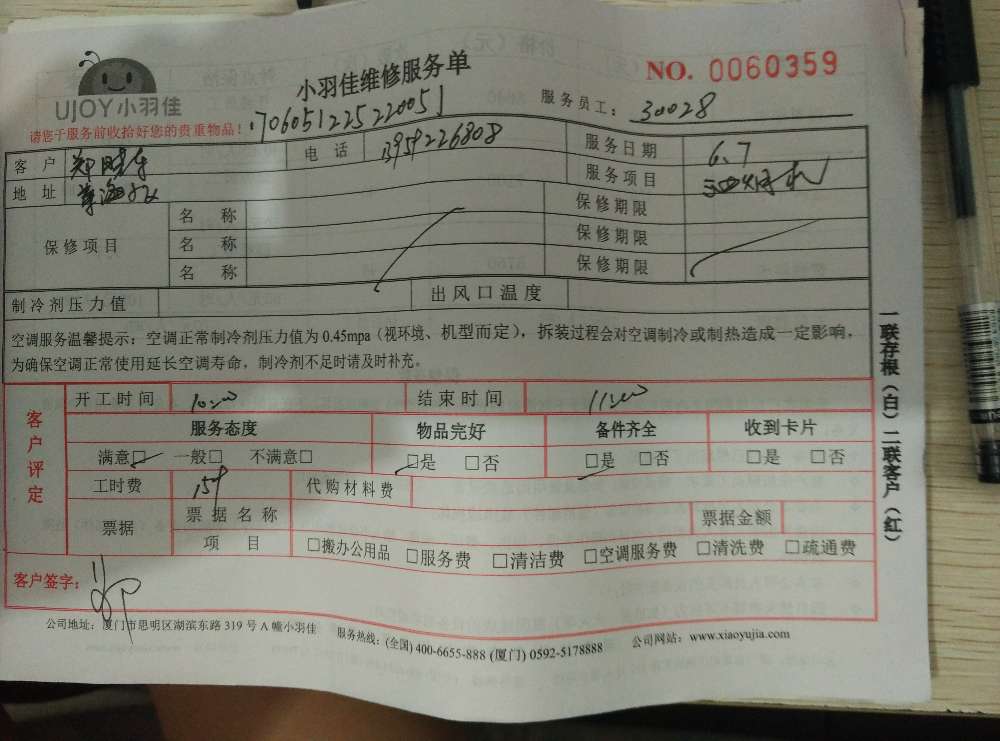 UJOY小羽佳
小羽佳维修服务单
NO. 0060359
请您于服务前收拾好您的贵重物品！
170605122522005 1
服务员工：30028
客户
电话 13959226808
服务日期 6.7
地址
服务项目
保修项目
名称 保修期限
名称 保修期限
名称 保修期限
制冷剂压力值 出风口温度
空调服务温馨提示：空调正常制冷剂压力值为0.45mpa（视环境、机型而定），拆装过程会对空调制冷或制热造成一定影响，
为确保空调正常使用延长空调寿命，制冷剂不足时请及时补充。
客户评定
开工时间 10:00 结束时间 11:00
服务态度 物品完好 备件齐全 收到卡片
满意□ 一般□ 不满意□ □是 □否 □是 □否 □是 □否
工时费 159 代购材料费
票据 票据名称 票据金额
项目 □搬办公用品 □服务费 □清洁费 □空调服务费 □清洗费 □疏通费
客户签字：
一联存根（白）二联客户（红）
公司地址：厦门市思明区湖滨东路319号A幢小羽佳 服务热线：(全国) 400-6655-888 (厦门) 0592-5178888 公司网站：www.xiaoyujia.com